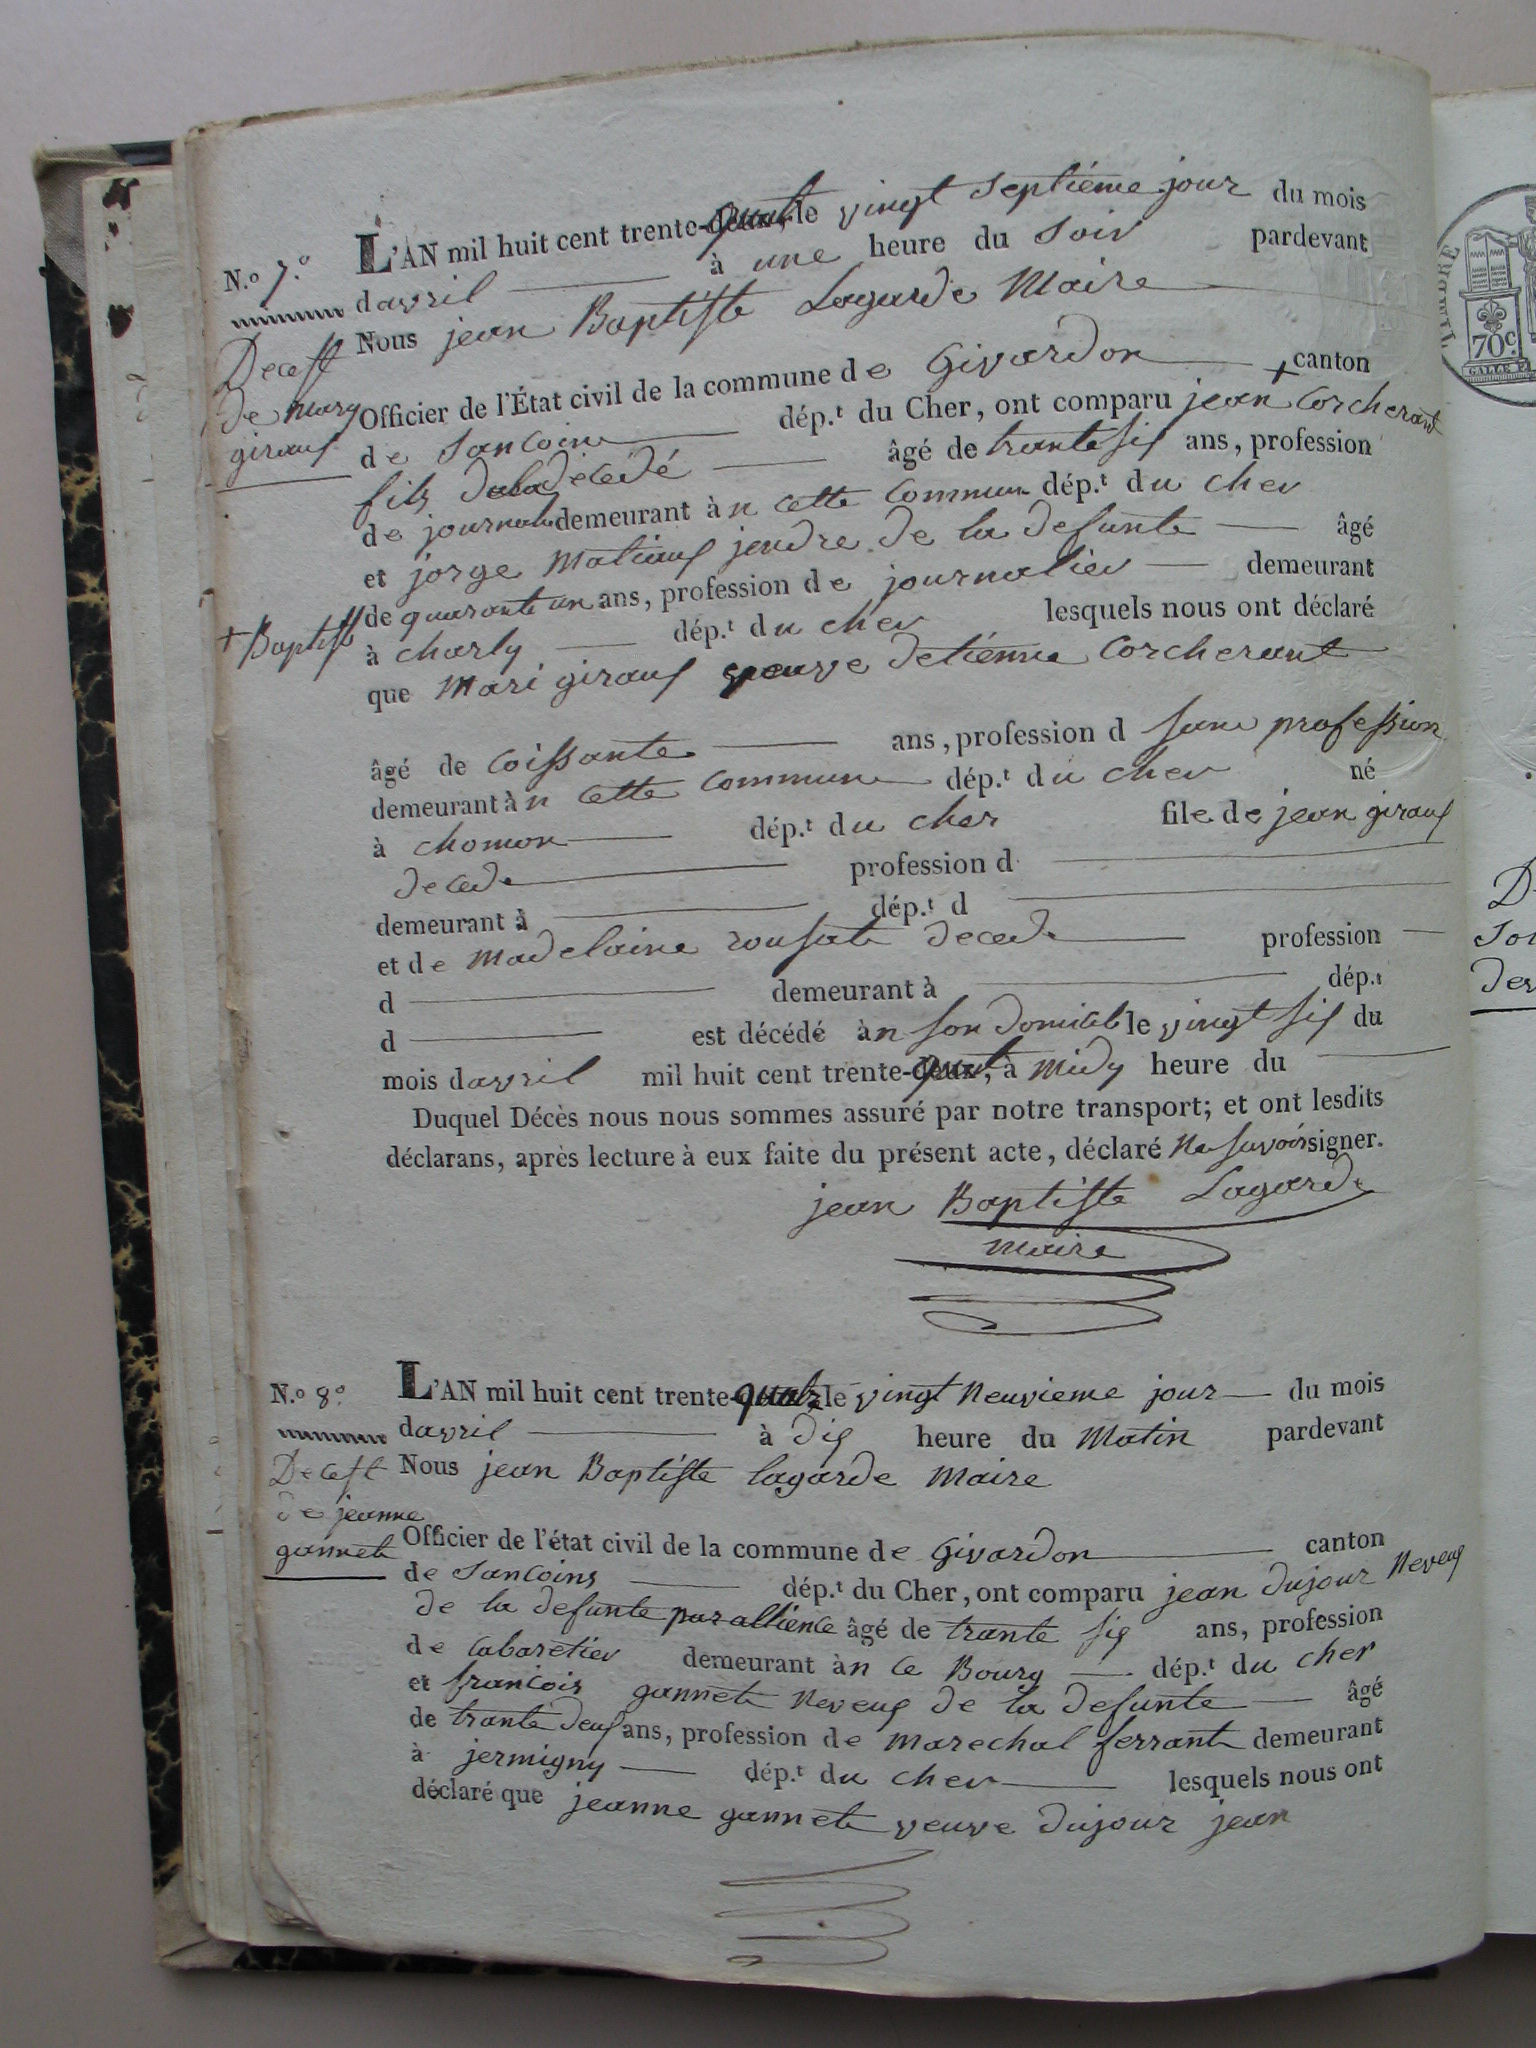 N.o 7.o
L'AN mil huit cent trente-quat, le vingt septiéme jour du mois
davril à une heure du soir pardevant
Nous jean Baptiste Lagarde Maire
Decest
de mary
giraux
Officier de l'État civil de la commune de Givardon canton
de Sancoins dép.t du Cher, ont comparu jean + Corcherant
fils dela décédé âgé de trante six ans, profession
de journalié demeurant àn cette commun dép.t du cher
et jorge Matiaux jendre de la defunte âgé
de quarante un ans, profession de journalier demeurant
+ Baptiste
à charly dép.t du cher lesquels nous ont déclaré
que Mari giraux veuve detiénne Corcherant
âgé de coissante ans, profession d sans profession
demeurant àn cette commune dép.t du cher né
à chomon dép.t du cher file de jean giraux
decede profession d
demeurant à dép.t d
et de Madelaine rousate decede profession
d demeurant à dép.t
d est décédé àn son domicile le vingt six du
mois davril mil huit cent trente-quat, à midy heure du
Duquel Décès nous nous sommes assuré par notre transport; et ont lesdits
déclarans, après lecture à eux faite du présent acte, déclaré Ne savoir signer.
jean Baptiste Lagarde
maire
N.o 8.o
L'AN mil huit cent trente-quatre, le vingt Neuvieme jour du mois
davril à dix heure du Matin pardevant
Decest
de jeanne
gannete
Nous jean Baptiste lagarde Maire
Officier de l'état civil de la commune de Givardon canton
de Sancoins dép.t du Cher, ont comparu jean dujour Neveux
de la defunte par allience âgé de trante six ans, profession
de cabaretier demeurant àn ce Bourg dép.t du cher
et francois gannete Neveux de la defunte âgé
de trante deux ans, profession de marechal ferrant demeurant
à jermigny dép.t du cher lesquels nous ont
déclaré que jeanne gannete veuve dujour jean
TIMBRE
70c.